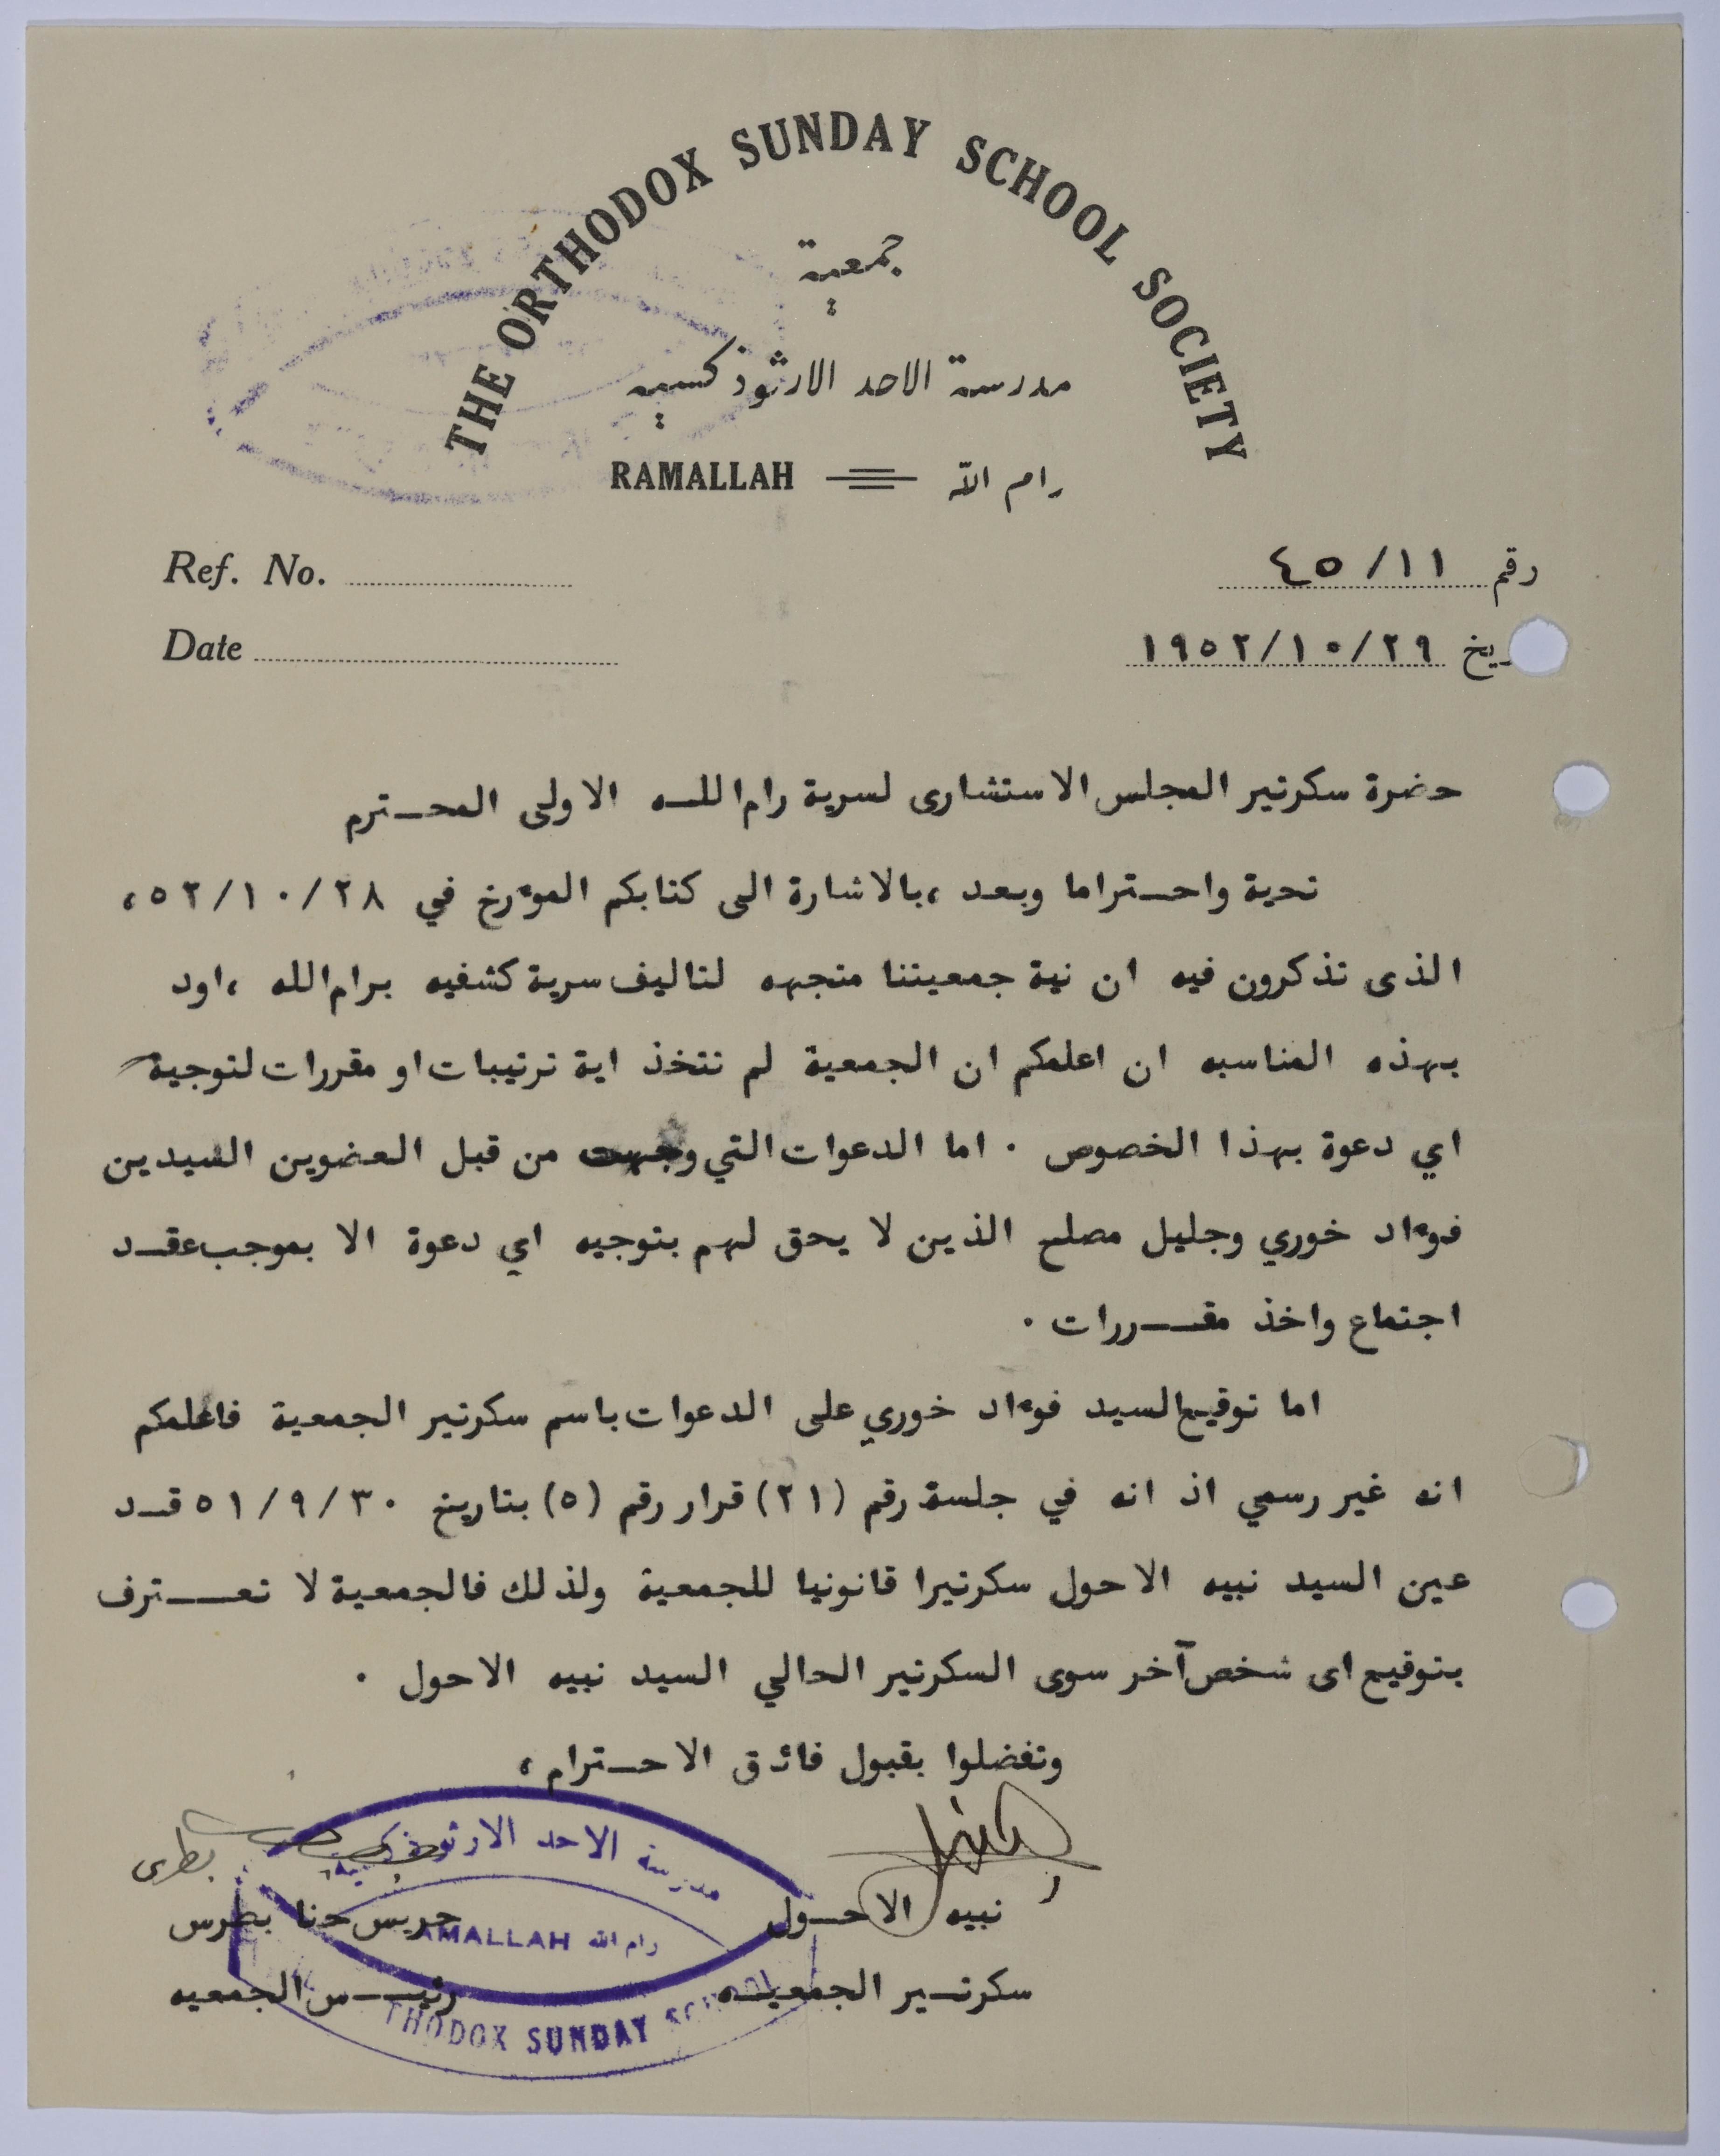 THE ORTHODOX SUNDAY SCHOOL SOCIETY
جمعية
مدرسة الاحد الارثوذكسيه
RAMALLAH رام الله
Ref. No. رقم ٤٥/١١
Date يخ ١٩٥٢/١٠/٢٩
حضرة سكرتير المجلس الاستشارى لسرية رام اللـه الاولى المحـترم
تحية واحـتراما وبعد ،بالاشارة الى كتابكم الموءرخ في ٥٢/١٠/٢٨،
الذى تذكرون فيه ان نية جمعيتنا متجهه لتاليف سرية كشفيه برام الله ،اود
بهذه المناسبه ان اعلمكم ان الجمعية لم تتخذ اية ترتيبات او مقررات لتوجية
اي دعوة بهذا الخصوص . اما الدعوات التي وجهت من قبل العضوين السيدين
فوءاد خوري وجليل مصلح الذين لا يحق لهم بتوجيه اي دعوة الا بموجب عقـد
اجتماع واخذ مقــررات .
اما توقيع السيد فوءاد خوري على الدعوات باسم سكرتير الجمعية فاعلمكم
انه غير رسمي اذ انه في جلسة رقم (٢١) قرار رقم (٥) بتاريخ ٥١/٩/٣٠ قـد
عين السيد نبيه الاحول سكرتيرا قانونيا للجمعية ولذلك فالجمعية لا تعــترف
بتوقيع اى شخص آخر سوى السكرتير الحالي السيد نبيه الاحول .
وتفضلوا بقبول فائق الاحـترام ،
مدرسة الاحد الارثوذكسية
بطرس
نبيه الاحـول جريس حنا بطرس
AMALLAH رام الله
سكرتـير الجمعيـه رئيــس الجمعيه
THODOX SUNDAY SCHOOL